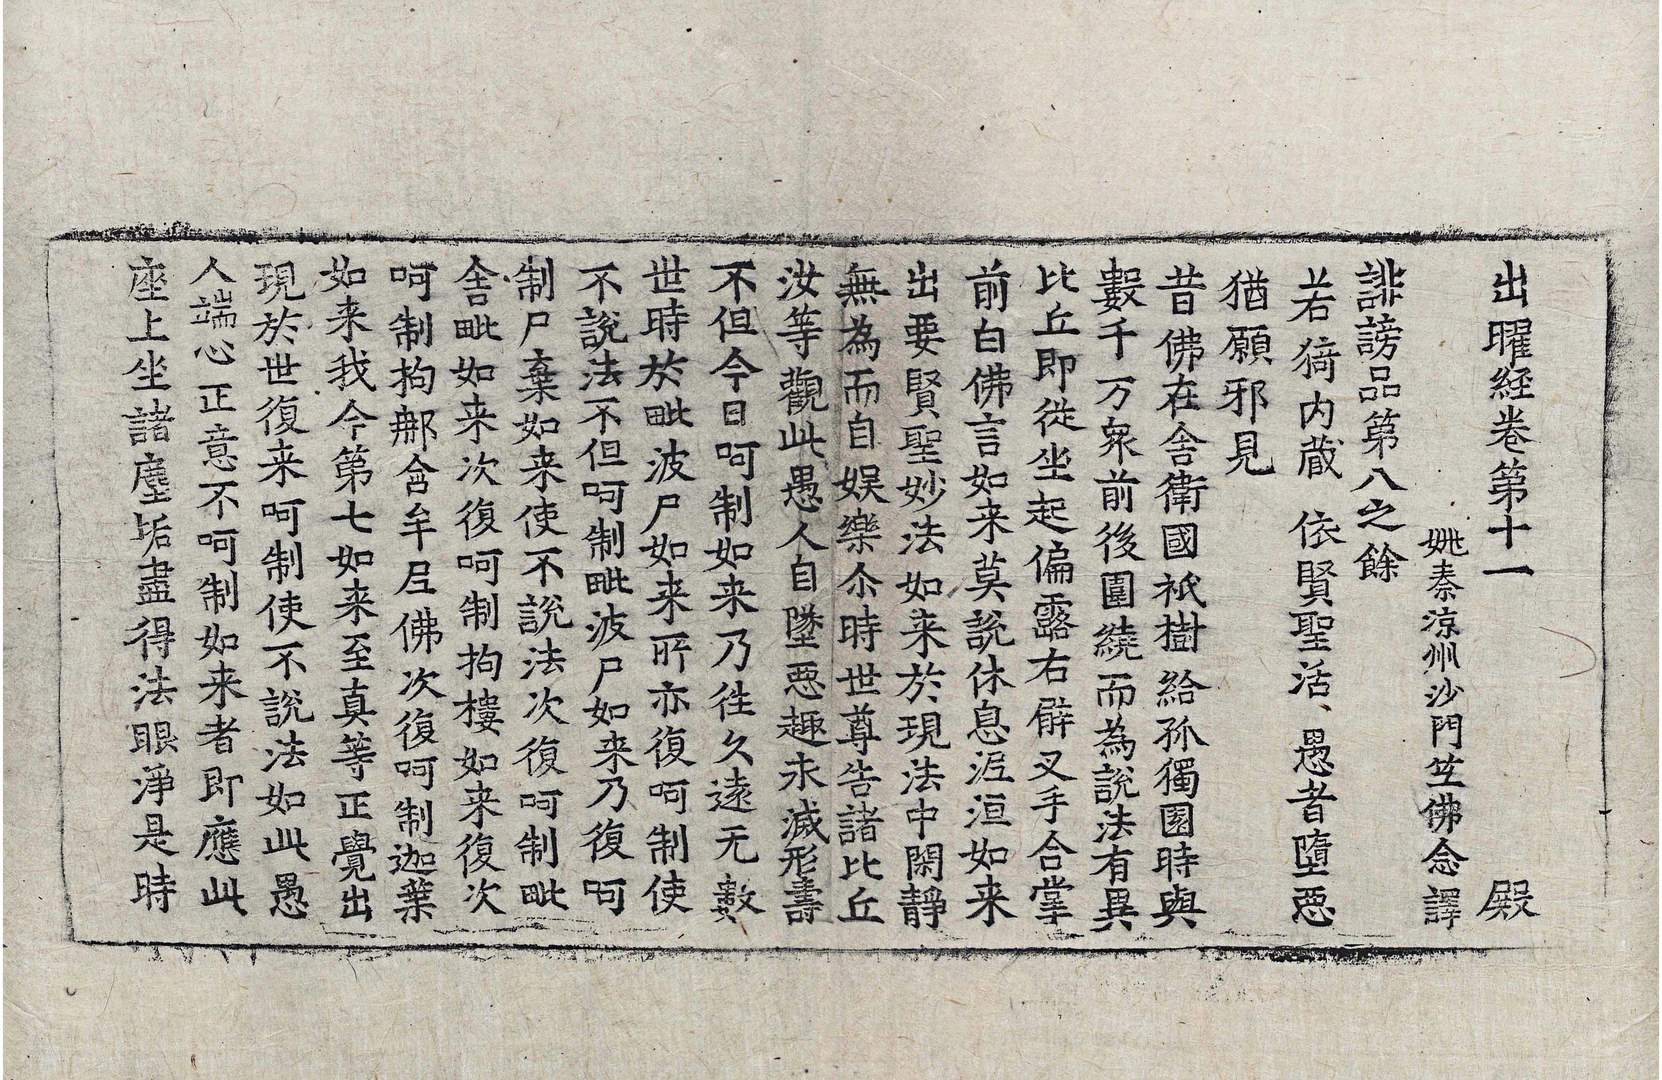 出曜経卷第十一 殿
姚秦涼州沙門笁佛念譯
誹謗品第八之餘
若猗内蔵 依賢聖活、愚者墮惡
猶願邪見
昔佛在舎衛國祇樹給孤獨園時與
數千万衆前後圍繞而為説法有異
比丘即從坐起偏露右臂叉手合掌
前白佛言如来莫説休息泥洹如来
出要賢聖妙法如来於現法中閑靜
無為而自娱樂尒時世尊告諸比丘
汝等觀此愚人自墜惡趣永滅形壽
不但今日呵制如来乃徃久遠无數
世時於毗波尸如来所亦復呵制使
不説法不但呵制毗波尸如来乃復呵
制尸棄如来使不説法次復呵制毗
舎毗如来次復呵制拘樓如来復次
呵制拘那含牟尼佛次復呵制迦葉
如来我今第七如来至真等正覺出
現於世復来呵制使不説法如此愚
人端心正意不呵制如来者即應此
座上坐諸塵垢盡得法眼淨是時